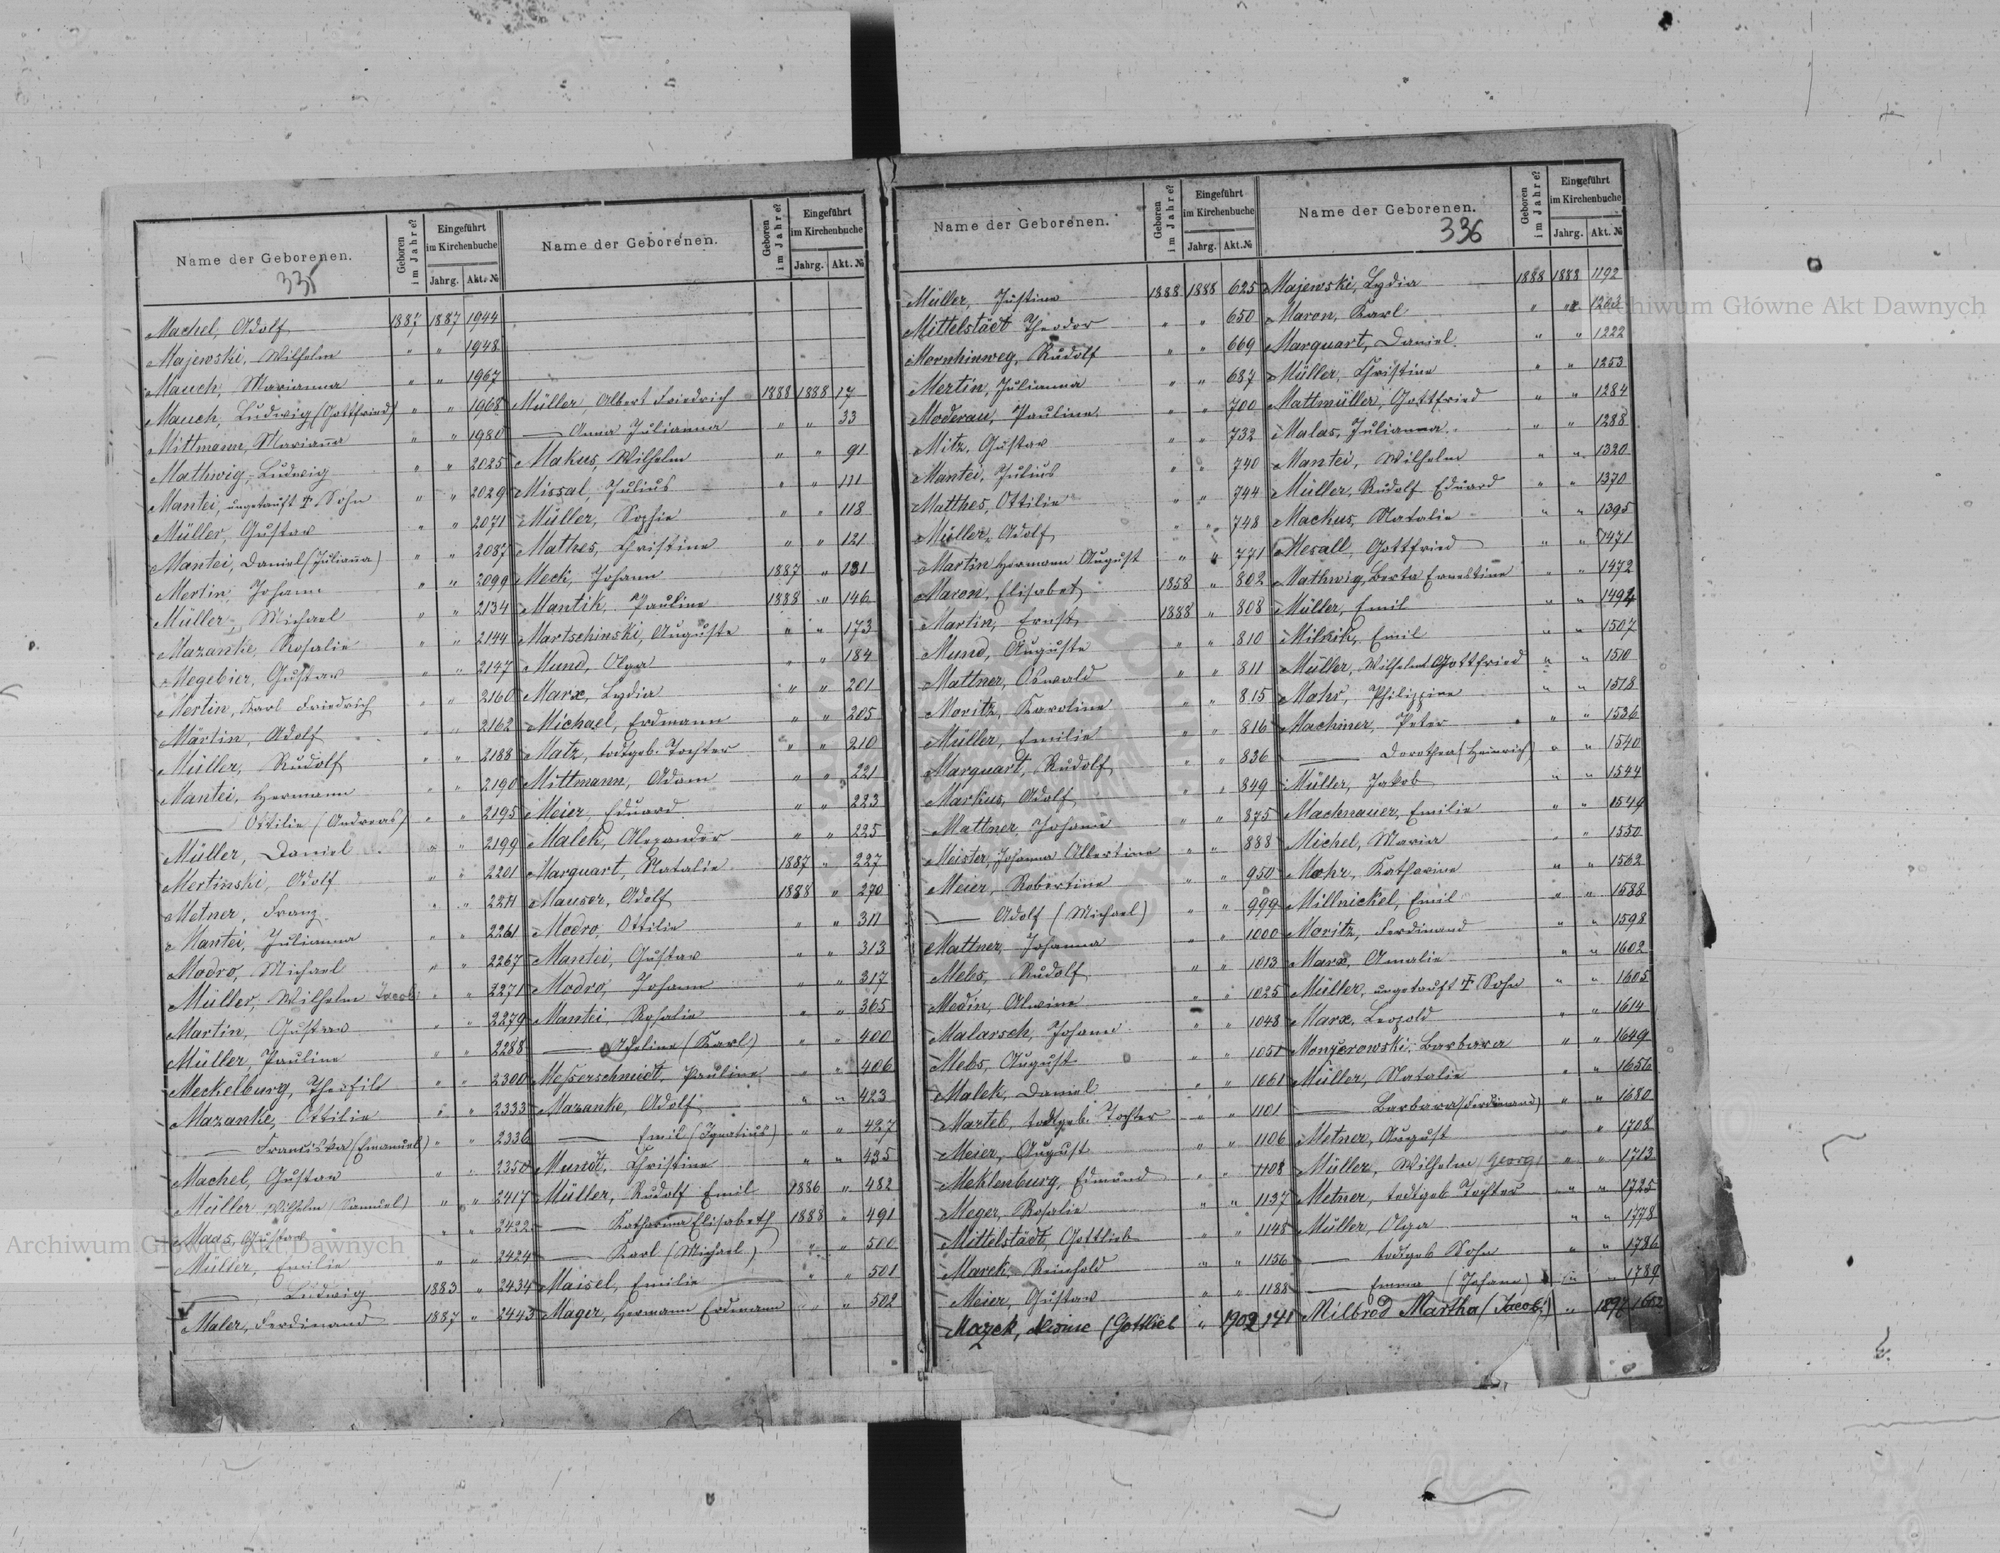 Name der Geborenen. Geboren im Jahre? Eingeführt im Kirchenbuche Jahrg. Akt. №
335
Machel, Adolf 1887 1887 1944
Majewski, Wilhelm " " 1948
Mauch, Marianna " " 1967
Mauch, Ludwig (Gottfried) " " 1968
Mittmann, Marianna " " 1980
Mathwig, Ludwig " " 2025
Mantei, ungetauft † Sohn " " 2029
Müller, Gustav " " 2071
Mantei, Daniel (Julianna) " " 2087
Mertin, Johann " " 2099
Müller, Michael " " 2134
Mazanke, Rosalie " " 2144
Megebier, Gustav " " 2147
Mertin, Karl Friedrich " " 2160
Märtin, Adolf " " 2162
Müller, Rudolf " " 2188
Mantei, Hermann " " 2190
—— Ottilie (Andreas) " " 2195
Müller, Daniel " " 2199
Mertinski, Adolf " " 2201
Metner, Franz " " 2211
Mantei, Julianna " " 2261
Modro, Michael " " 2267
Müller, Wilhelm Jacob " " 2271
Martin, Gustav " " 2279
Müller, Pauline " " 2288
Meckelburg, Theofil " " 2300
Mazanke, Ottilie " " 2333
—— Franciska (Emanuel) " " 2336
Machel, Gustav " " 2350
Müller, Wilhelm (Samuel) " " 2417
Maas, Gustav " " 2422
Müller, Emilie " " 2424
—— Ludwig 1883 " 2434
Maler, Ferdinand 1887 " 2443
Name der Geborenen. Geboren im Jahre? Eingeführt im Kirchenbuche Jahrg. Akt. №
Müller, Albert Friedrich 1888 1888 17
—— Anna Julianna " " 33
Makus, Wilhelm " " 91
Missal, Julius " " 111
Müller, Sophie " " 118
Mathes, Christine " " 121
Meck, Johann 1887 " 131
Mantik, Pauline 1888 " 146
Martschinski, Auguste " " 173
Mund, Olga " " 184
Marx, Lydia " " 201
Michael, Erdmann " " 205
Matz, todtgeb. Tochter " " 210
Mittmann, Adam " " 221
Meier, Eduard " " 223
Malek, Alexander " " 225
Marquart, Natalie 1887 " 227
Mauser, Adolf 1888 " 270
Modro, Ottilie " " 311
Mantei, Gustav " " 313
Modro, Johann " " 317
Mantei, Rosalie " " 365
—— Adeline (Karl) " " 400
Messerschmidt, Pauline " " 406
Mazanke, Adolf " " 423
—— Emil (Ignatius) " " 427
Mundt, Christine " " 435
Müller, Rudolf Emil 1886 " 482
—— Katharina Elisabeth 1888 " 491
—— Karl (Michael) " " 500
Maisel, Emilie " " 501
Mager, Hermann Erdmann " " 502
Name der Geborenen. Geboren im Jahre? Eingeführt im Kirchenbuche Jahrg. Akt. №
Müller, Justine 1888 1888 625
Mittelstädt Theodor " " 650
Mornhinweg, Rudolf " " 669
Mertin, Julianna " " 687
Moderau, Pauline " " 700
Mitz, Gustav " " 732
Mantei, Julius " " 740
Matthes, Ottilie " " 744
Müller, Adolf " " 748
Martin Hermann August " " 771
Maron, Elisabet 1858 " 802
Martin, Ernst 1888 " 808
Mund, Auguste " " 810
Mattner, Oswald " " 811
Moritz, Karoline " " 815
Müller, Emilie " " 816
Marquart, Rudolf " " 836
Markus, Adolf " " 849
Mattner Johann " " 875
Meister, Johanna Albertine " " 888
Meier, Robertine " " 950
—— Adolf (Michael) " " 999
Mattner, Johanna " " 1000
Mebs, Rudolf " " 1013
Medin, Alwine " " 1025
Malarsch, Johann " " 1048
Mebs, August " " 1051
Malek, Daniel " " 1061
Marteb, todtgeb. Tochter " " 1101
Meier, August " " 1106
Meklenburg, Edmund " " 1108
Meger, Rosalie " " 1137
Mittelstädt, Gottlieb " " 1145
Marek, Reinhold " " 1156
Meier, Gustav " " 1188
(Gottlieb " 1902 141
Name der Geborenen. Geboren im Jahre? Eingeführt im Kirchenbuche Jahrg. Akt. №
336
Majewski, Lydia 1888 1888 1192
Maron, Karl " "
Marquart, Daniel " " 1222
Müller, Christine " " 1253
Mattmüller, Gottfried " " 1284
Malas, Julianna " " 1288
Mantei, Wilhelm " " 1320
Müller, Rudolf Eduard " " 1370
Mackus, Natalie " " 1395
Mesall, Gottfried " " 1471
Mathwig, Berta Ernestine " " 1472
Müller, Emil " " 1492
Milnik, Emil " " 1507
Müller, Wilhelm Gottfried " " 1510
Mohr, Philippine " " 1518
Machmer, Peter " " 1536
—— Dorothea (Heinrich) " " 1540
Müller, Jakob " " 1544
Machnauer, Emilie " " 1549
Michel, Maria " " 1550
Mohr, Katharine " " 1562
Millnickel, Emil " " 1588
Moritz, Ferdinand " " 1598
Marx, Amalie " " 1602
Müller, ungetauft † Sohn " " 1605
Marx, Leopold " " 1614
Monzerowski, Barbara " " 1649
Müller, Natalie " " 1656
—— Barbara (Ferdinand) " " 1680
Metner, August " " 1708
Müller, Wilhelm Georg " " 1713
Metner, todtgeb Tochter " " 1725
Müller, Olga " " 1778
—— todtgeb Sohn " " 1786
—— Emma (Johann) " " 1789
Milbrod Martha (Jacob) " 1897 1662
Archiwum Główne Akt Dawnych
Archiwum Główne Akt Dawnych